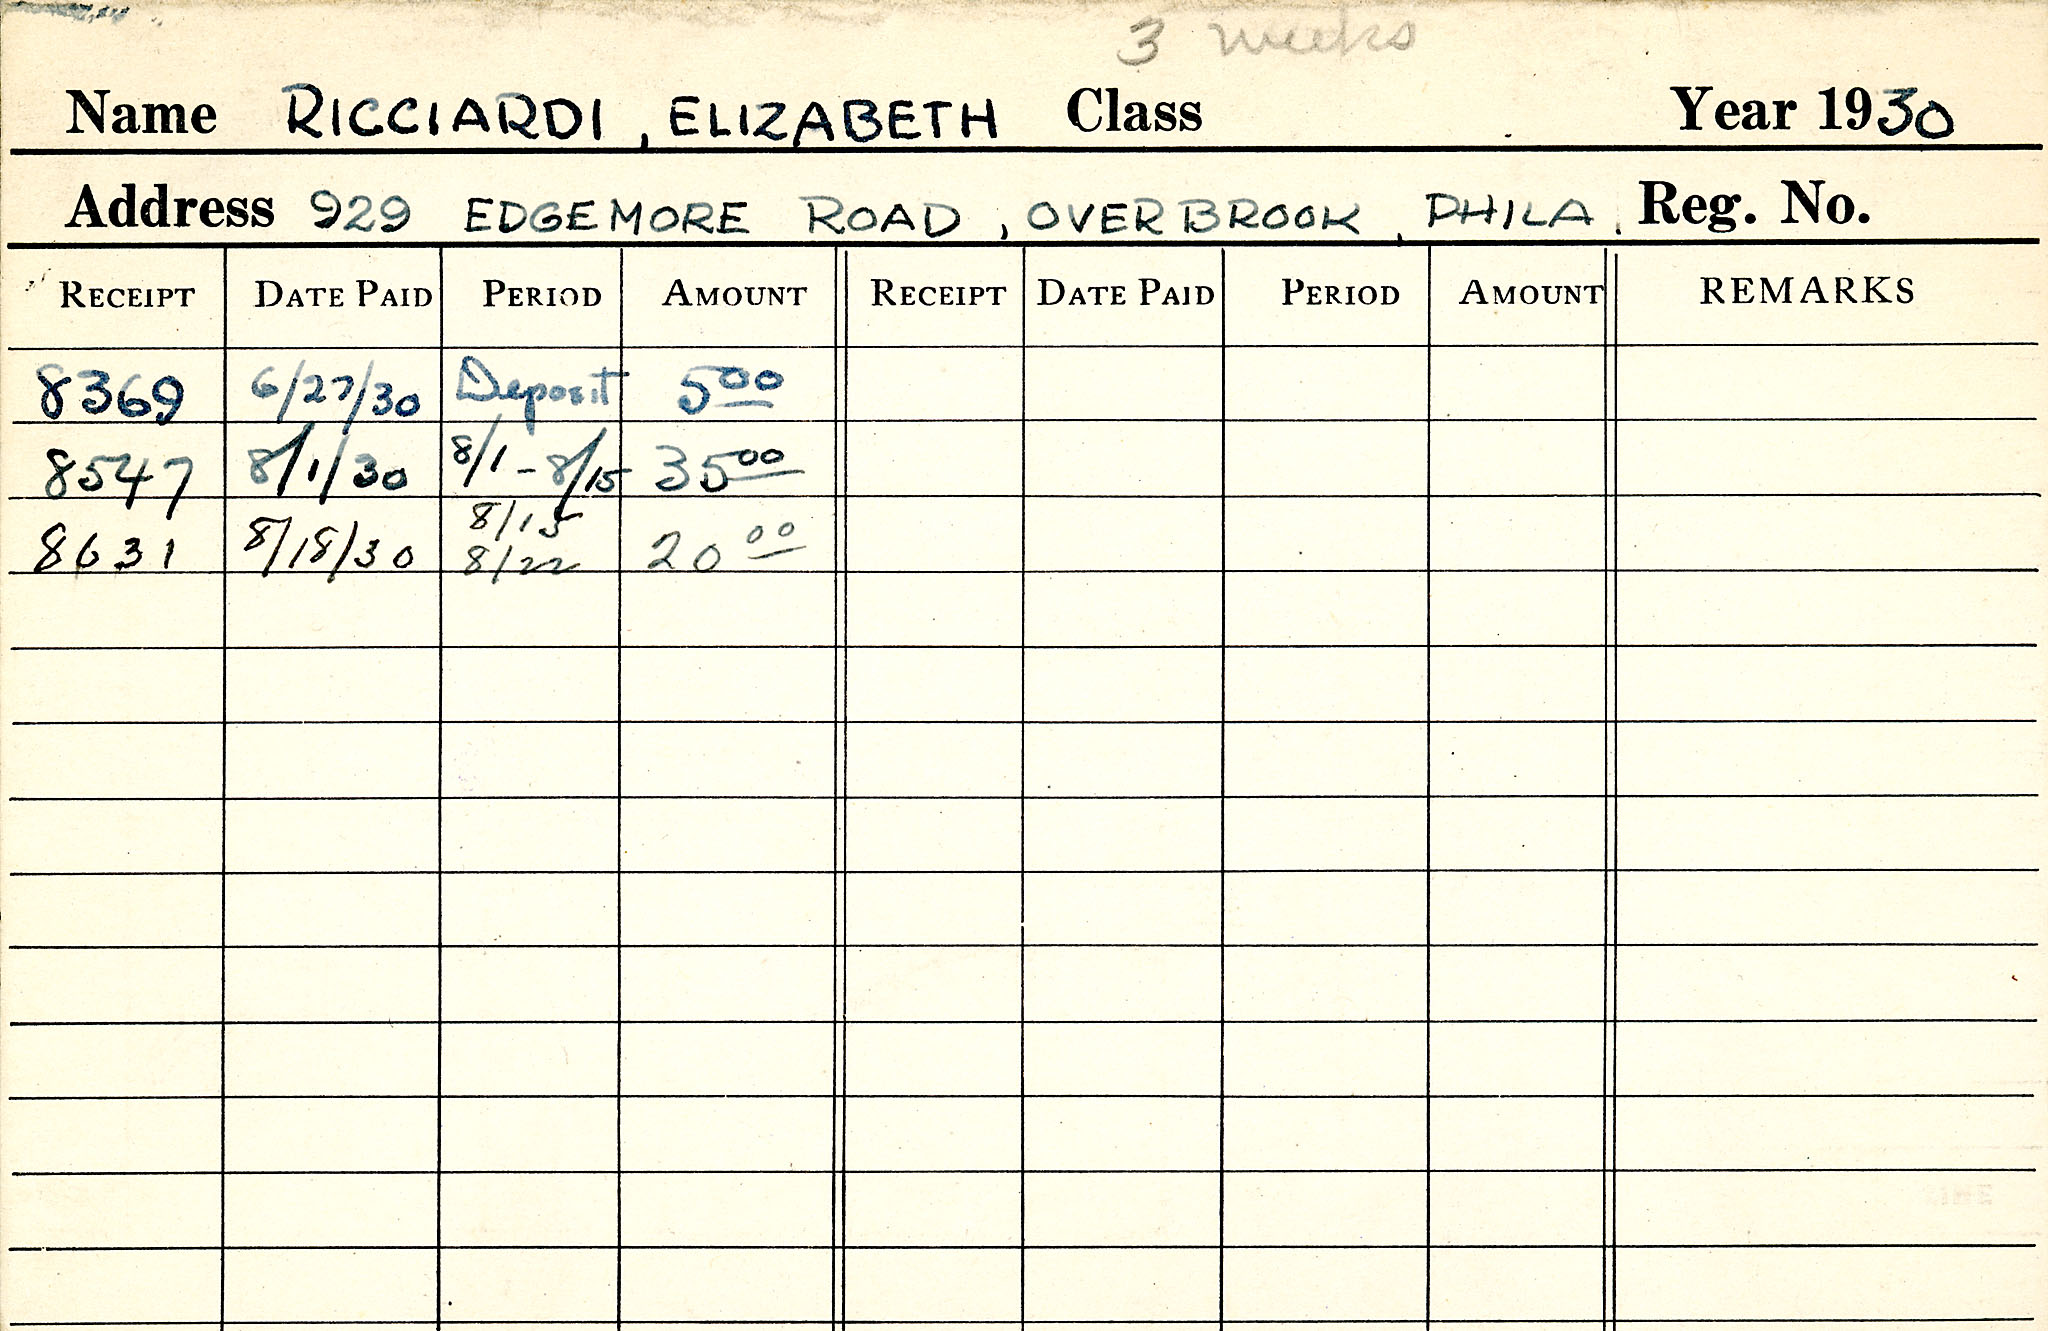 3 weeks
Name RICCIARDI, ELIZABETH Class Year 1930
Address 929 EDGEMORE ROAD, OVERBROOK, PHILA. Reg. No.
RECEIPT DATE PAID PERIOD AMOUNT RECEIPT DATE PAID PERIOD AMOUNT REMARKS
8369 6/27/30 Deposit 5 00
8547 8/1/30 8/1 - 8/15 35 00
8/15
8631 8/18/30 8/22 20 00